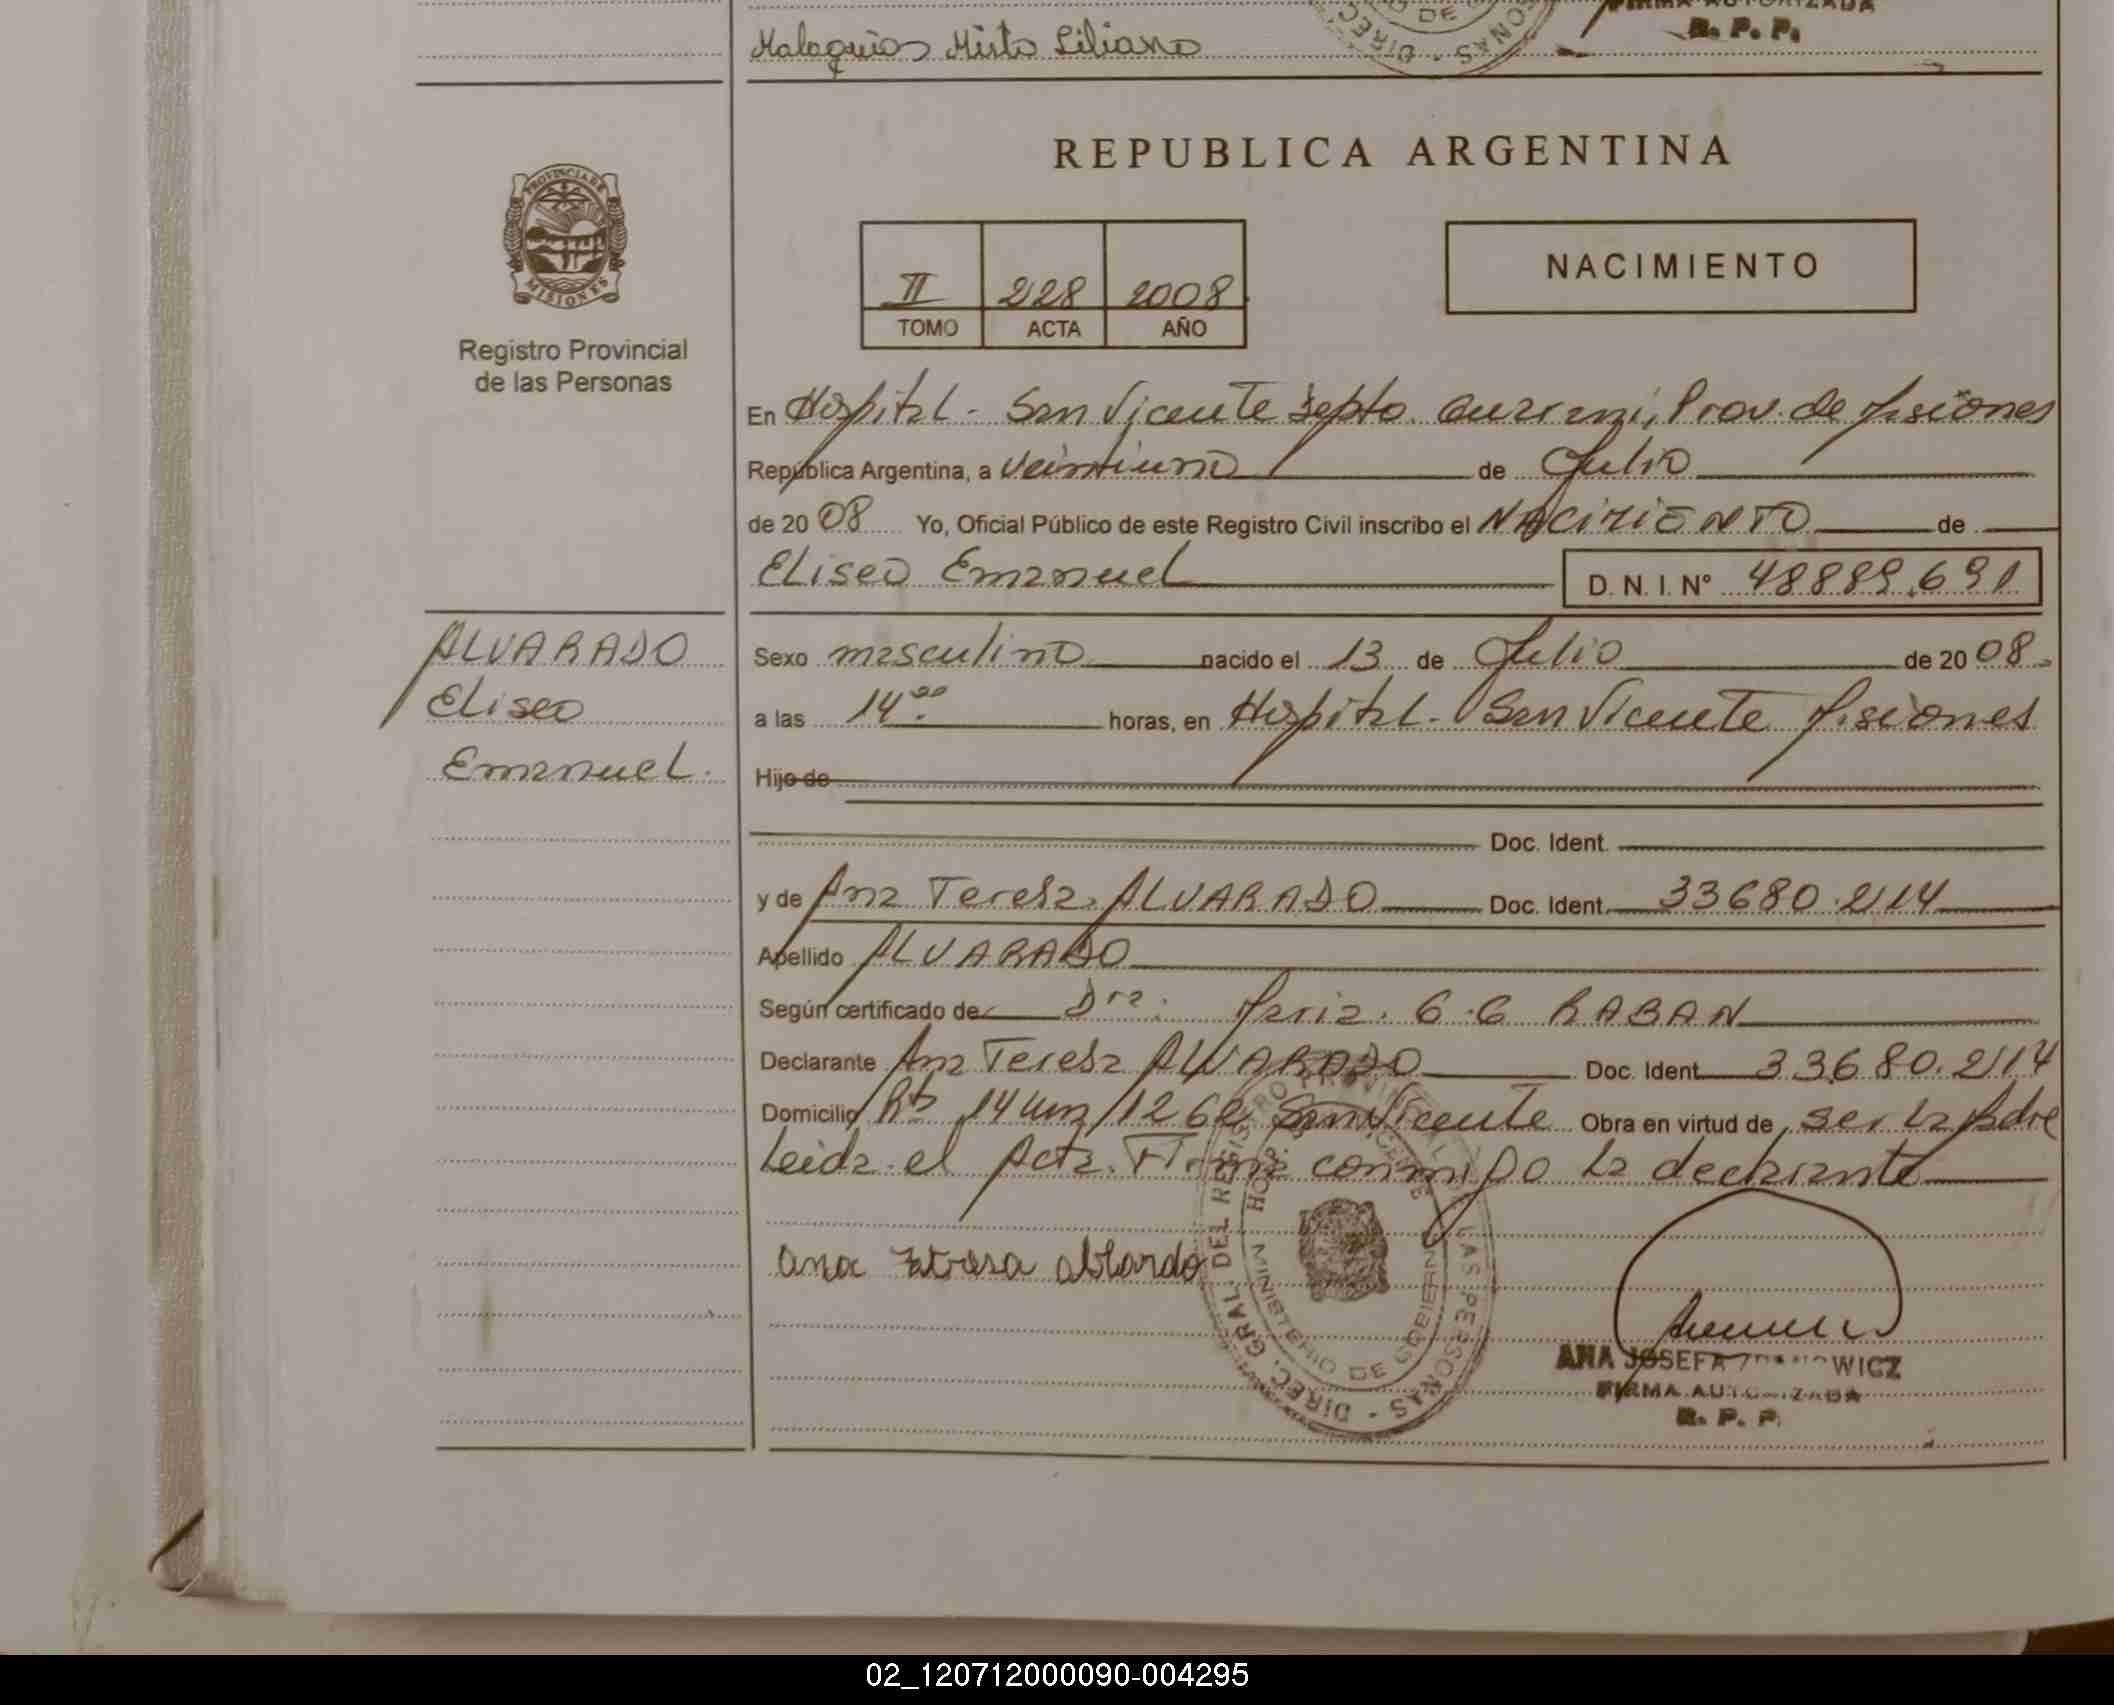 Malaquias Misto Liliano
DE
DIREC
NAS
FIRMA AUTORIZADA
R. P. P.
REPUBLICA ARGENTINA
PROVINCIA DE
MISIONES
Registro Provincial
de las Personas
II 228 2008
TOMO ACTA AÑO
NACIMIENTO
En Hospital - San Vicente Depto. Guarani, Prov. de Misiones
República Argentina, a veintiuno de Julio
de 20 08 Yo, Oficial Público de este Registro Civil inscribo el NACIMIENTO de
Eliseo Emanuel D. N. I. N° 48889.691
ALVARADO
Eliseo
Emanuel.
Sexo masculino nacido el 13 de Julio de 20 08.
a las 14.00 horas, en Hospital - San Vicente Misiones
Hijo de
Doc. Ident.
y de Ana Teresa ALVARADO Doc. Ident. 33680.214
Apellido ALVARADO
Según certificado de Dra. Maria. G.G RABAN
Declarante Ana Teresa ALVARADO Doc. Ident. 33.680.214
Domicilio 14 1262 San Vicente Obra en virtud de ser la Madre
Leida el Acta. Firma conmigo la declarante
ana
DIREC. GRAL. DEL REGISTRO PROVINCIAL LAS PERSONAS
MINISTERIO DE GOBIERNO
ANA JOSEFA WICZ
FIRMA AUTORIZADA
R. P. P.
02_120712000090-004295